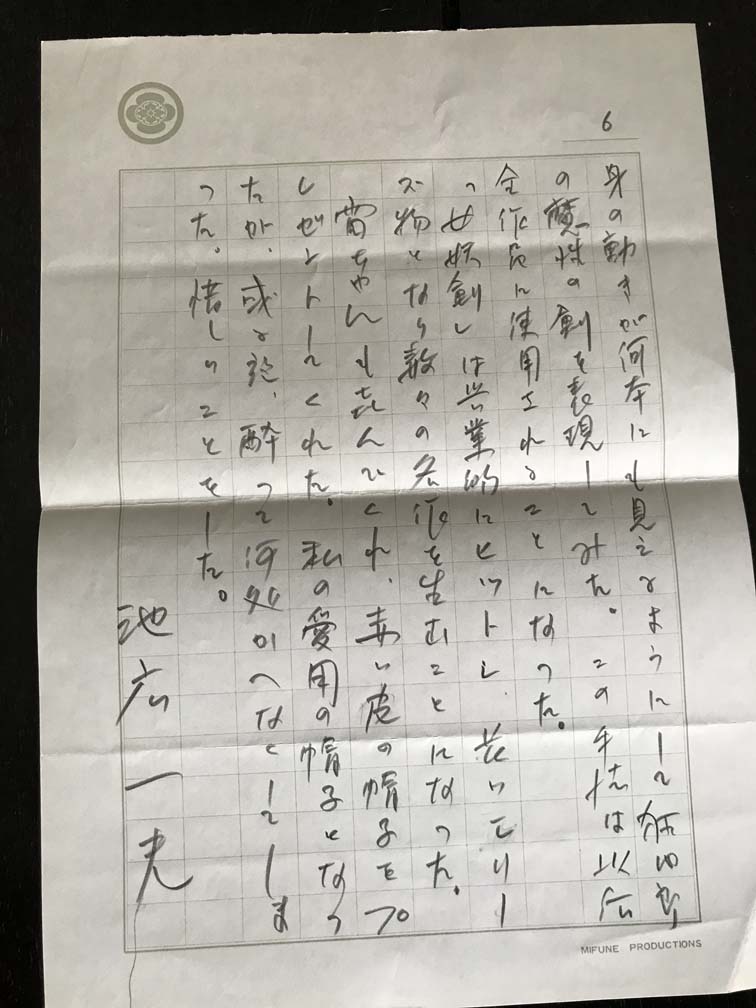 6
身の動きが何本にも見えるようにして狂四郎
の魔性の剣を表現してみた。この手法は以后
全作品に使用されることになった。
「女妖剣」は興業的にヒットし シリー
ズ物となり数々の名作を生むことになった。
雷ちゃんも喜んでくれ、赤い皮の帽子をプ
レゼントしてくれた。私の愛用の帽子となっ
たが、或る夜、酔って何処かへなくしてしま
った。惜しいことをした。
池広一夫
MIFUNE PRODUCTIONS